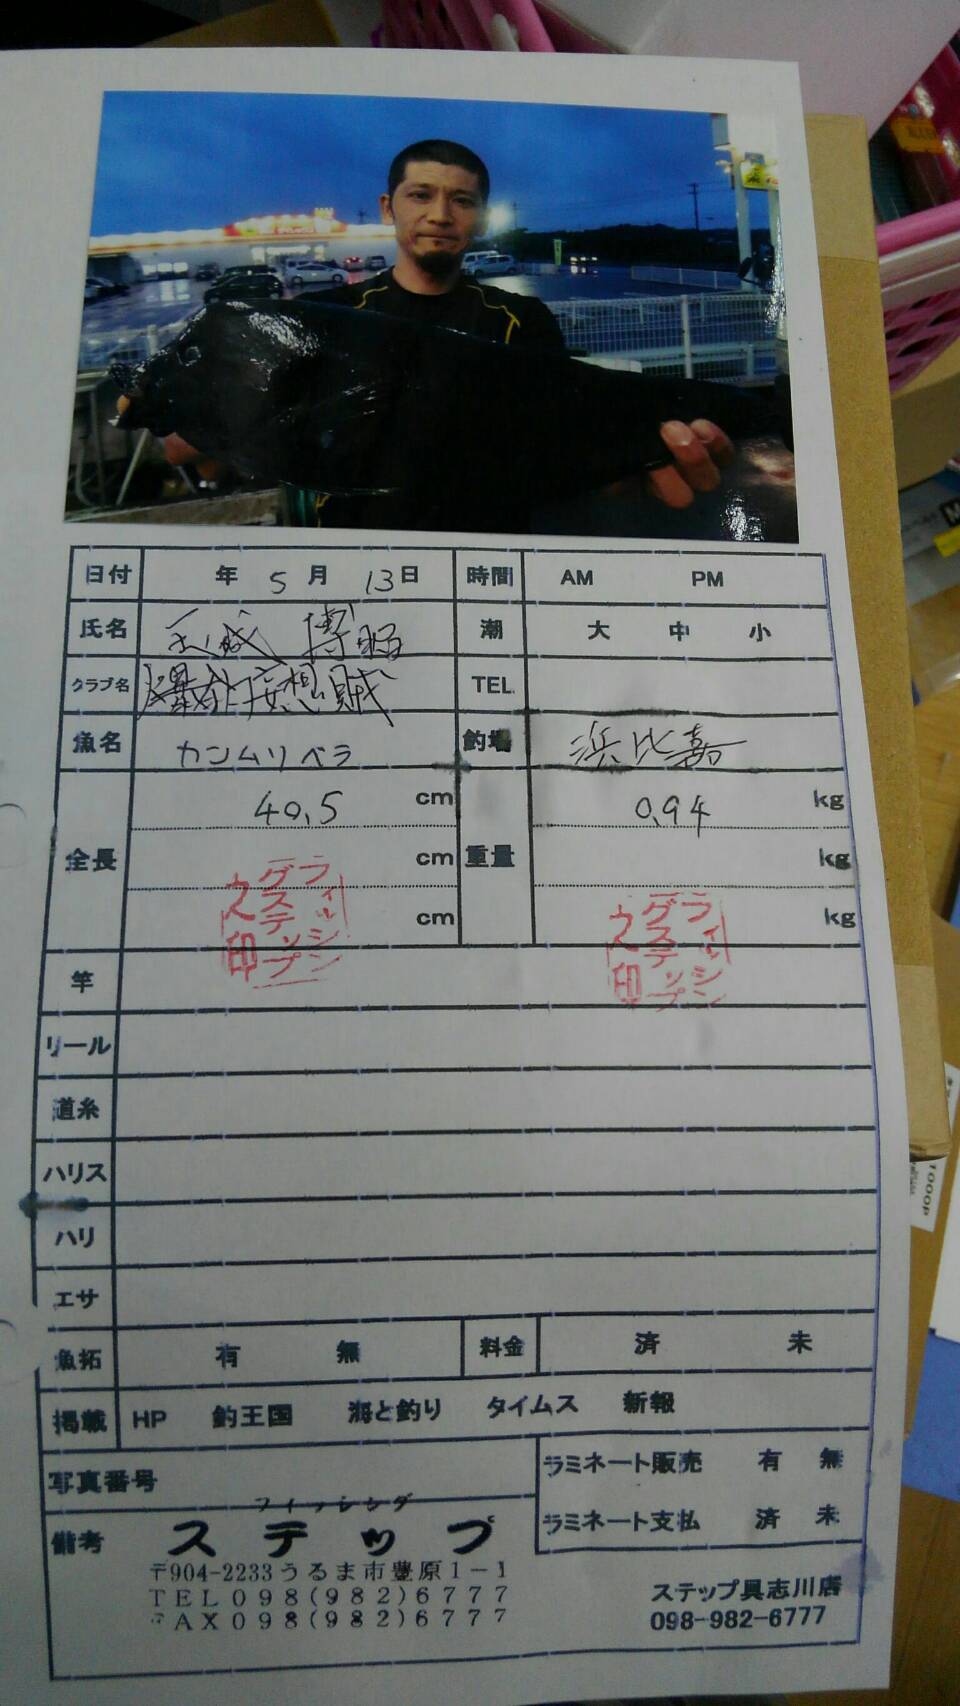 日付 年 5 月 13 日 時間 AM PM
氏名 潮 大 中 小
クラブ名 妄想賊 TEL.
魚名 カンムリベラ 釣場 浜比嘉
全長 40.5 cm 重量 0.94 kg
cm kg
cm kg
フィッシングステップ之印
フィッシングステップ之印
竿
リール
道糸
ハリス
ハリ
エサ
魚拓 有 無 料金 済 未
掲載 HP 釣王国 海と釣り タイムス 新報
写真番号 ラミネート販売 有 無
ラミネート支払 済 未
備考
フィッシング
ステップ
〒904-2233うるま市豊原1-1
TEL098(982)6777
FAX098(982)6777
ステップ具志川店
098-982-6777
1000p